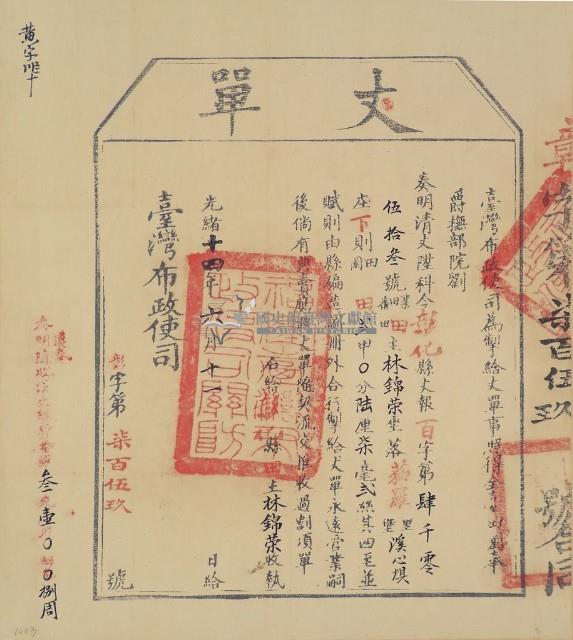 黃字
丈單
臺灣布政使司為掣給丈單事照得全臺田畝奉
爵撫部院劉
奏明清丈陞科今彰化縣丈報百字第肆千零
伍拾叁號業田主林錦榮坐落 堡溪心埧
庄下則田 田 甲〇分陸厘柒毫弍絲其四至並
賦則由縣編造 冊外合行掣給丈單永遠管業嗣
後倘有典賣應將丈單隨契流交推收過割須單
右給彰化縣田主林錦榮收執
光緒十四年六月十 日給
臺灣布政使司
彰字第柒百伍玖號
字第柒百伍玖號
國史館臺灣文獻館
奏明
叁 壹 〇 〇捌周
1003